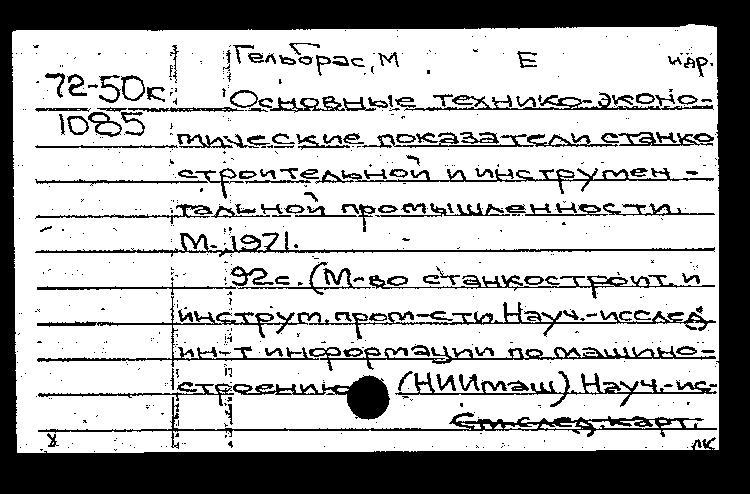 Гельбрас, М Е и др.
72-50к
1085
Основные технико-эконо-
мические показатели станко
строительной и инструмен-
тальной промышленности.
М., 1971.
92с. (М-во станкостроит. и
инструм. пром-сти. Науч.-исслед.
ин-т информации по машино-
строению (НИИмаш). Науч.-ис-
См. след. карт.
лк